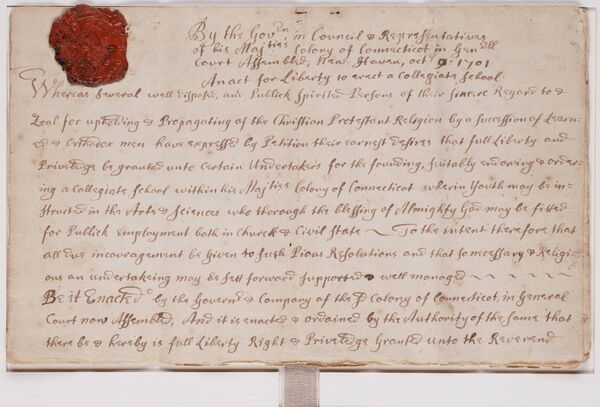 By the Govrn in Council & Representatives
of his Majties Colony of Connecticut in Genrll
Court Assembled, New-Haven, octr 9: 1701
An act for Liberty to erect a Collegiate School.
Whereas several well disposed, and Publick Spirited Persons of their sincere Regard to &
Zeal for upholding & Propagating of the Christian Protestant Religion by a succession of Learn-
ed & Orthodox men have expressed by Petition their earnest desires that full Liberty and
Priveledge be granted unto Certain Undertakers for the founding, suitably endowing & order-
ing a Collegiate School within his Majties Colony of Connecticut wherin Youth may be in-
structed in the Arts & Sciences who thorough the blessing of Almighty God may be fitted
for Publick employment both in Church & Civil State. To the intent therefore that
all due incouragement be given to such Pious Resolutions and that so necessary & Religi-
ous an undertakeing may be sett forward supported & well managed
Be it Enacted by the Governr & Company of the sd Colony of Connecticut, in General
Court now Assembled, And it is enacted & ordained by the Authority of the same that
there be & hereby is full Liberty Right & Priveledge Granted unto the Reverend